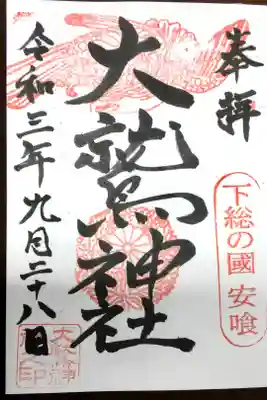 奉拝
下総の國 安喰
大鷲神社
令和三年九月二十八日